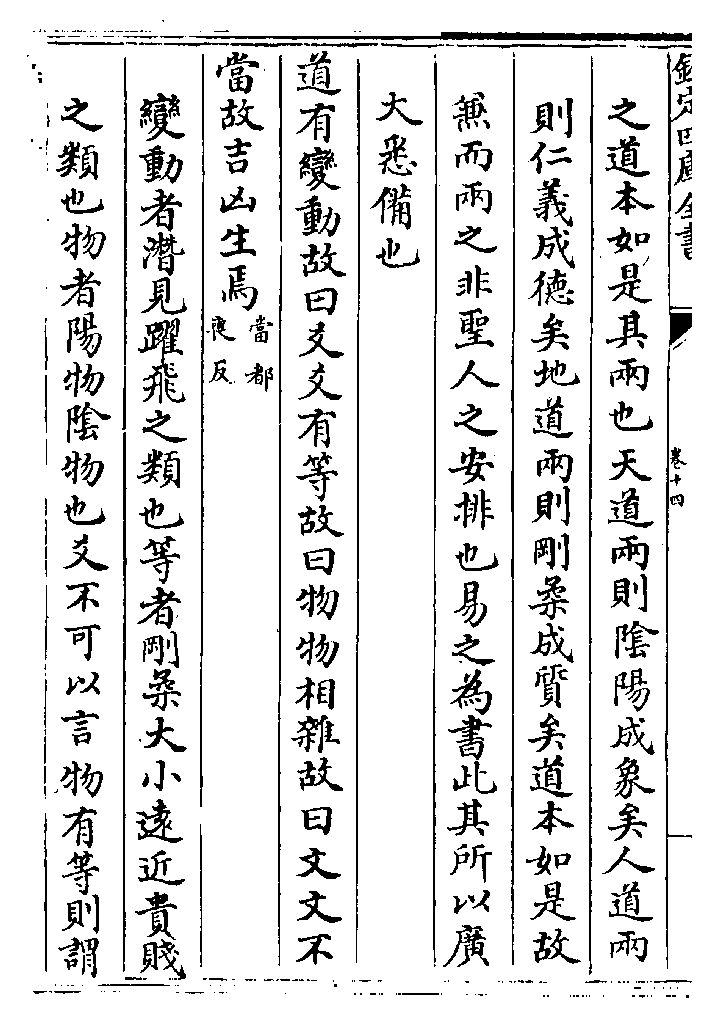 欽定四庫全書
卷十四
之道本如是其兩也天道兩則陰陽成象矣人道兩
則仁義成德矣地道兩則剛柔成質矣道本如是故
兼而兩之非聖人之安排也易之為書此其所以廣
大悉備也
道有變動故曰爻爻有等故曰物物相雜故曰文文不
當故吉凶生焉當都喪反
變動者潛見躍飛之類也等者剛柔大小遠近貴賤
之類也物者陽物陰物也爻不可以言物有等則謂